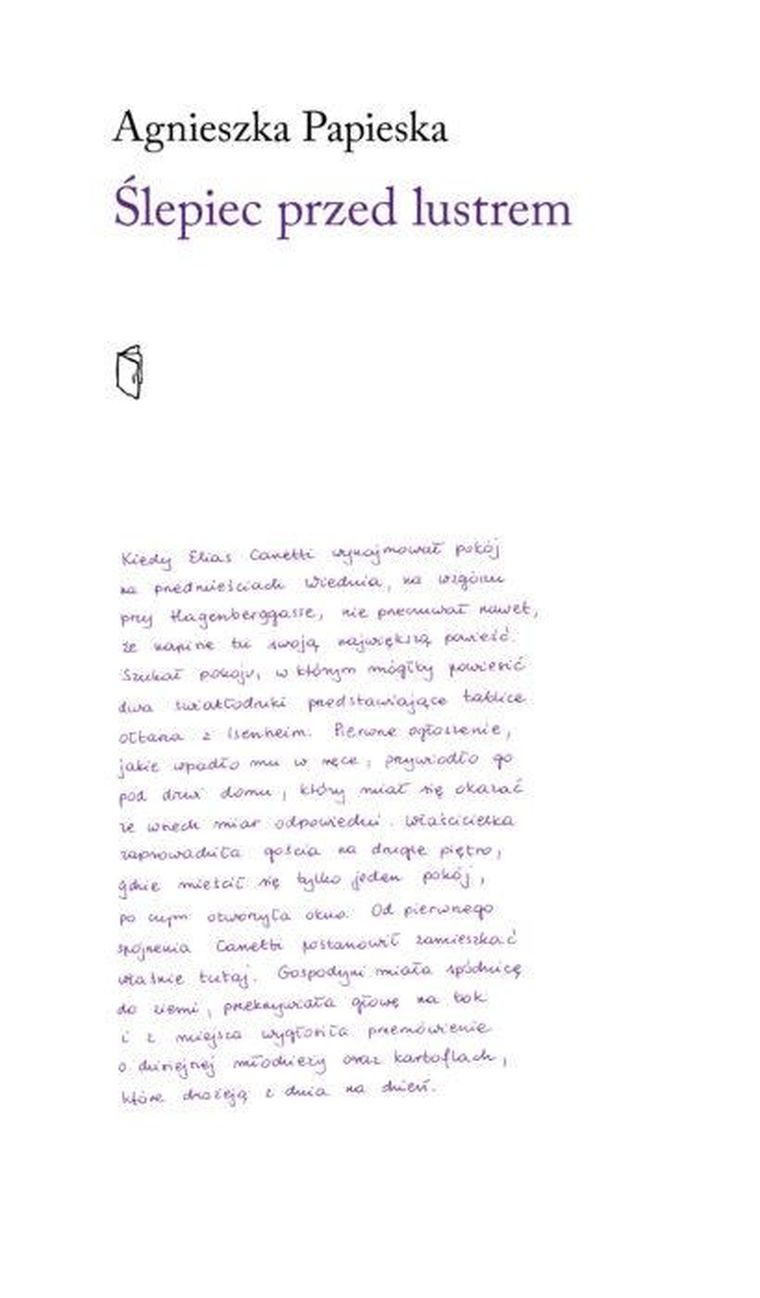 Agnieszka Papieska
Ślepiec przed lustrem
Kiedy Elias Canetti wynajmował pokój
na przedmieściach Wiednia, na wzgórzu
przy Hagenberggasse, nie przeczuwał nawet,
że napisze tu swoją największą powieść.
Szukał pokoju, w którym mógłby powiesić
dwa światłodruki przedstawiające tablice
ołtarza z Isenheim. Pierwsze ogłoszenie,
jakie wpadło mu w ręce, przywiodło go
pod drzwi domu, który miał się okazać
ze wszech miar odpowiedni. Właścicielka
zaprowadziła gościa na drugie piętro,
gdzie mieścił się tylko jeden pokój,
po czym otworzyła okno. Od pierwszego
spojrzenia Canetti postanowił zamieszkać
właśnie tutaj. Gospodyni miała spódnicę
do ziemi, przekrzywiała głowę na bok
i z miejsca wygłosiła przemówienie
o dzisiejszej młodzieży oraz kartoflach,
które drożeją z dnia na dzień.